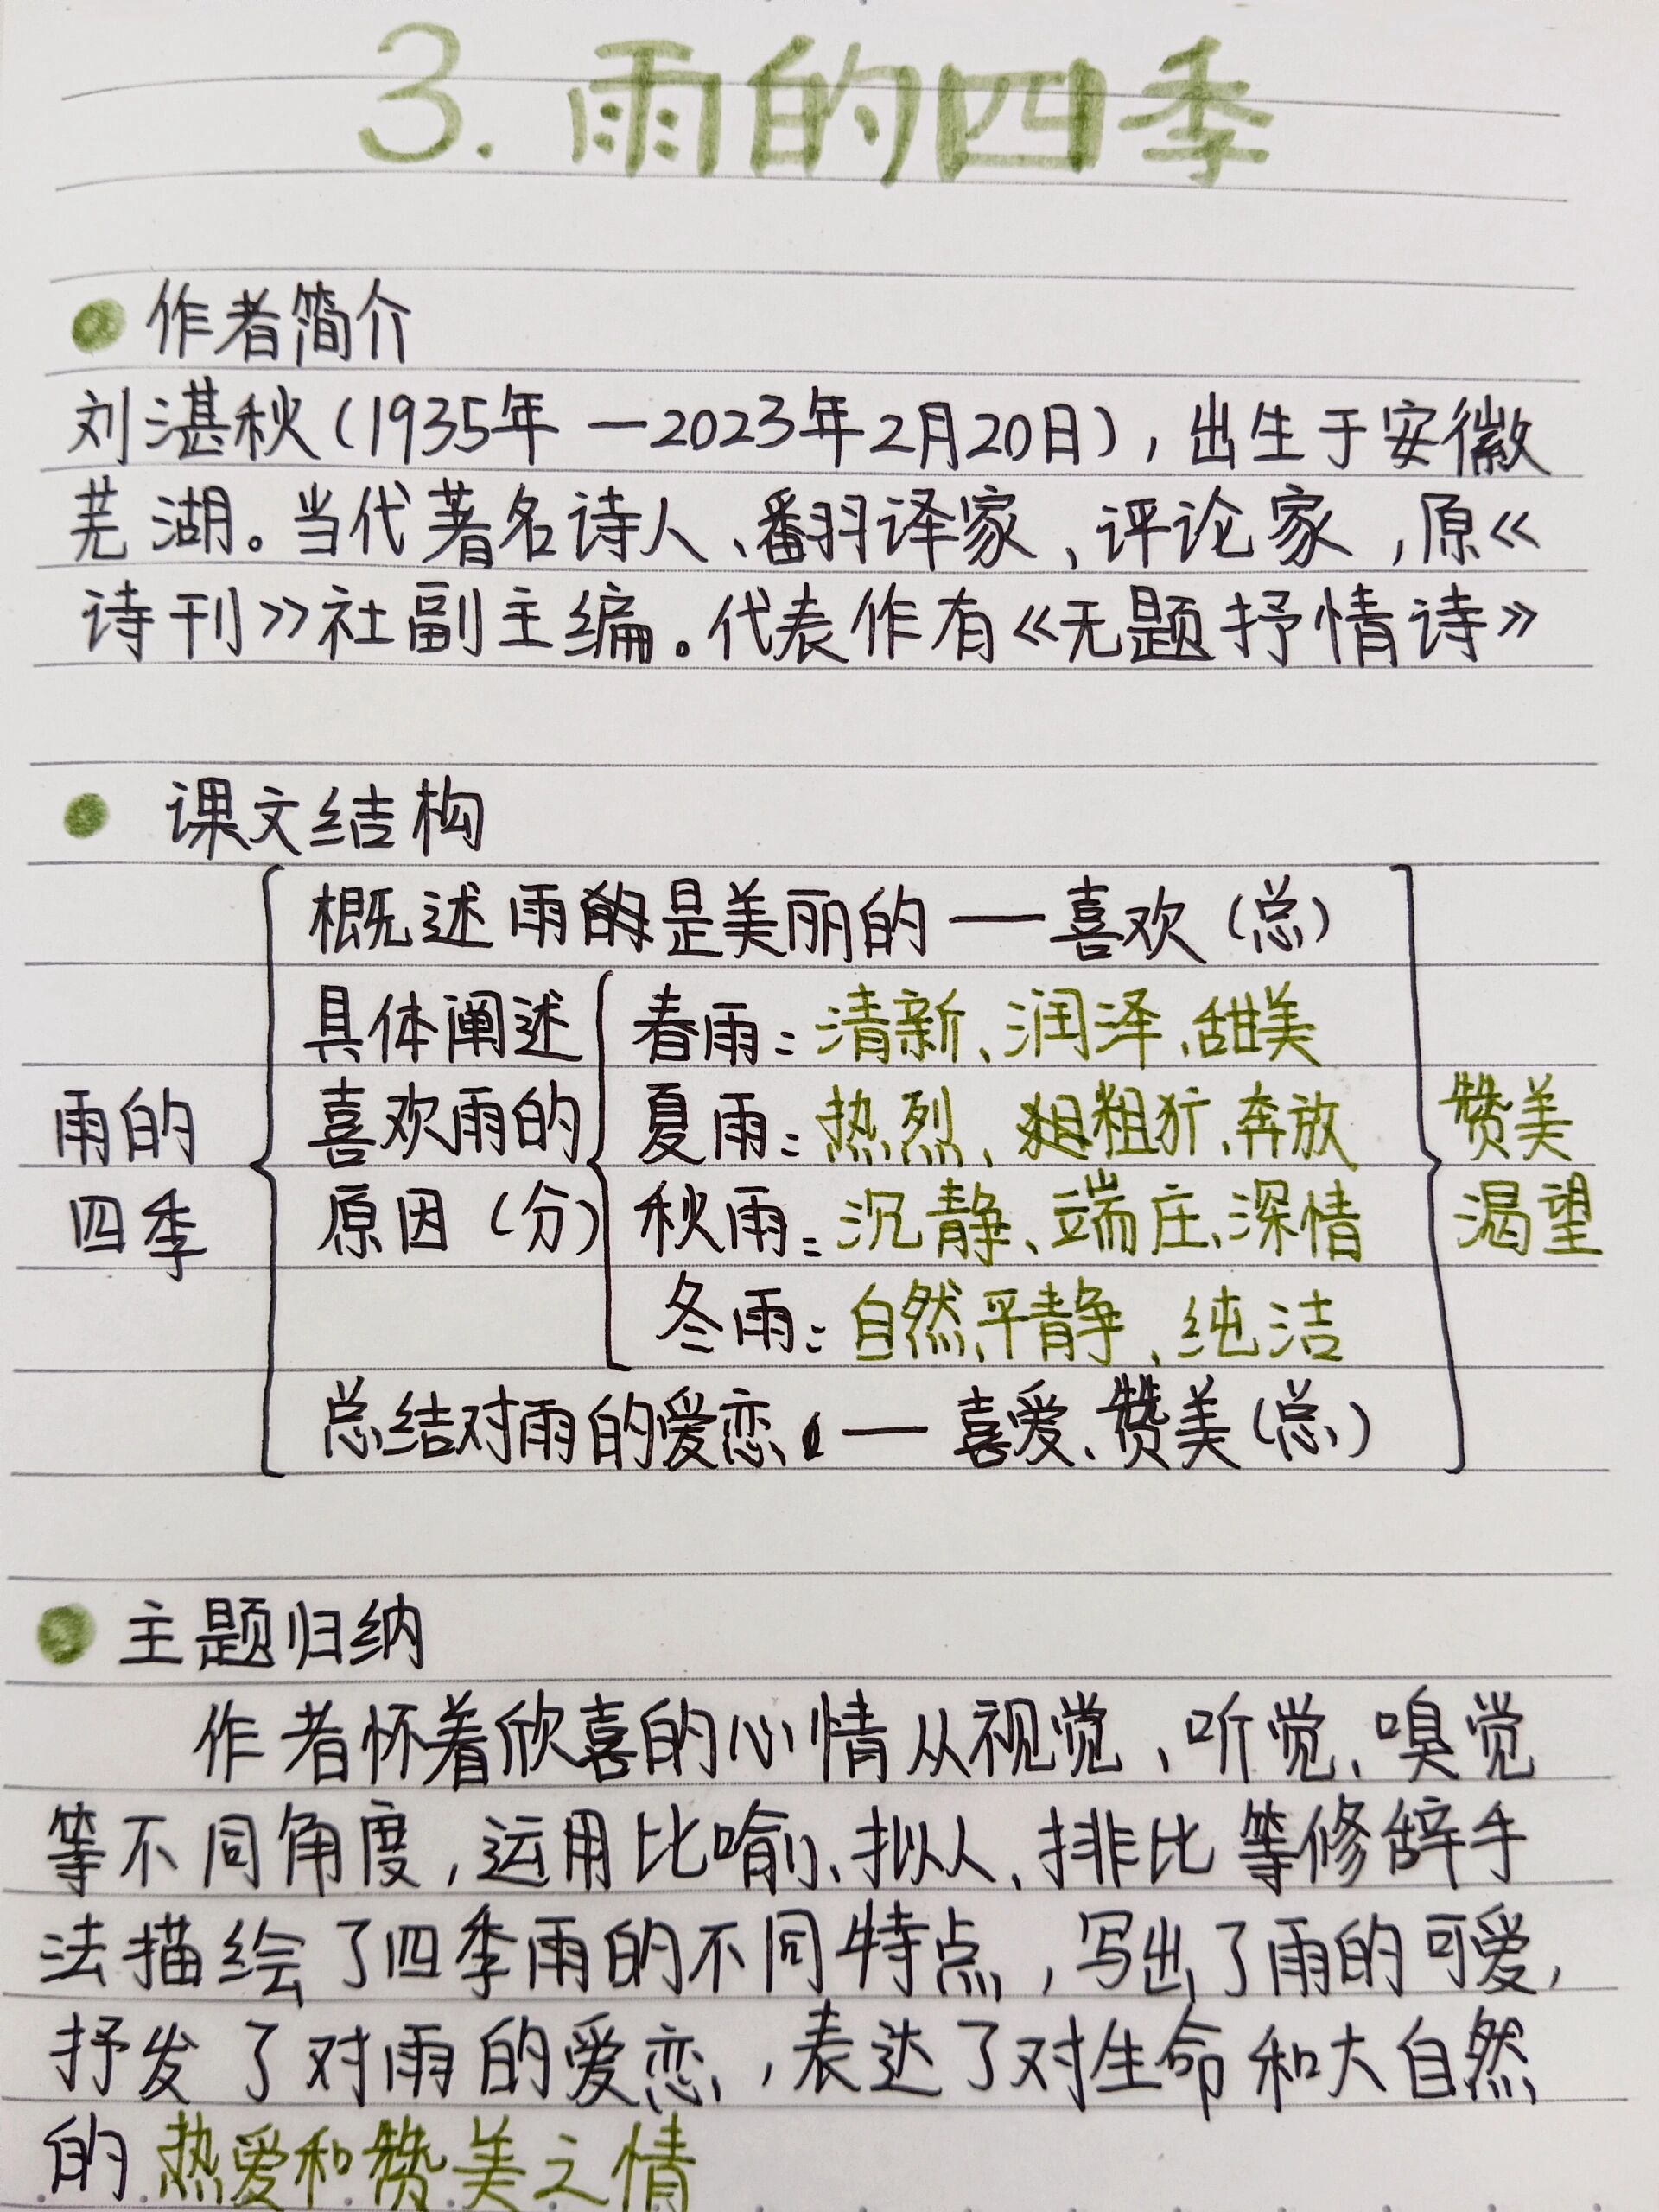 3. 雨的四季
作者简介
刘湛秋(1935年—2023年2月20日),出生于安徽
芜湖。当代著名诗人、翻译家、评论家,原《
诗刊》社副主编。代表作有《无题抒情诗》
课文结构
概述雨是美丽的——喜欢(总)
具体阐述 春雨:清新、润泽、甜美
雨的 喜欢雨的 夏雨:热烈、粗犷、奔放 赞美
四季 原因(分) 秋雨:沉静、端庄、深情 渴望
冬雨:自然、平静、纯洁
总结对雨的爱恋——喜爱、赞美(总)
主题归纳
作者怀着欣喜的心情从视觉、听觉、嗅觉
等不同角度,运用比喻、拟人、排比等修辞手
法描绘了四季雨的不同特点,写出了雨的可爱,
抒发了对雨的爱恋,表达了对生命和大自然
的热爱和赞美之情